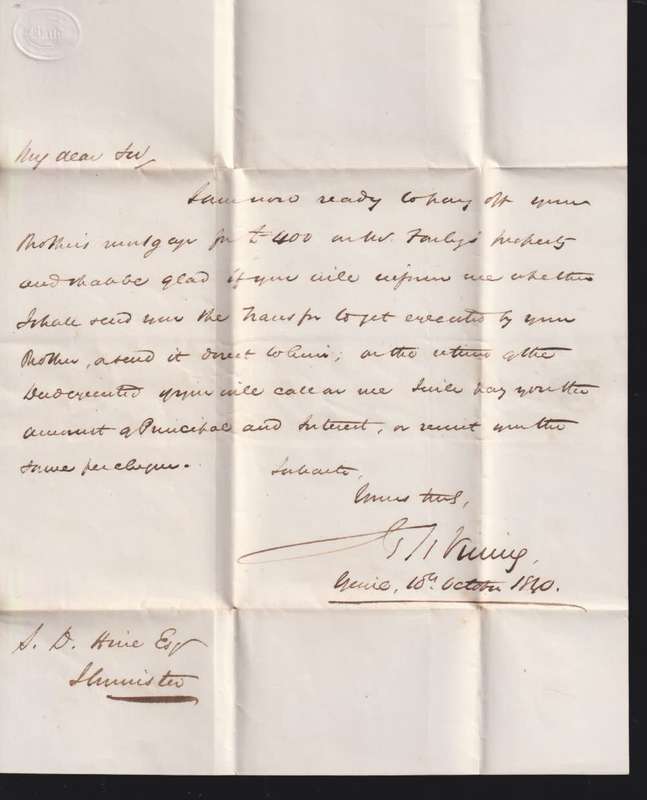 Bath
My dear Sir,
I am now ready to pay off your
Mother's mortgage for £400 on Mr. property
and shall be glad if you will inform me whether
I shall send you the Transfer to get executed by your
Mother, or send it direct to him; on the return of the
Deed executed if you will call on me I will pay you the
amount of Principal and Interest, or remit you the
same per cheque.
In haste,
Yours truly,
10th October 1840.
S. D. Hine Esqr
Ilminster